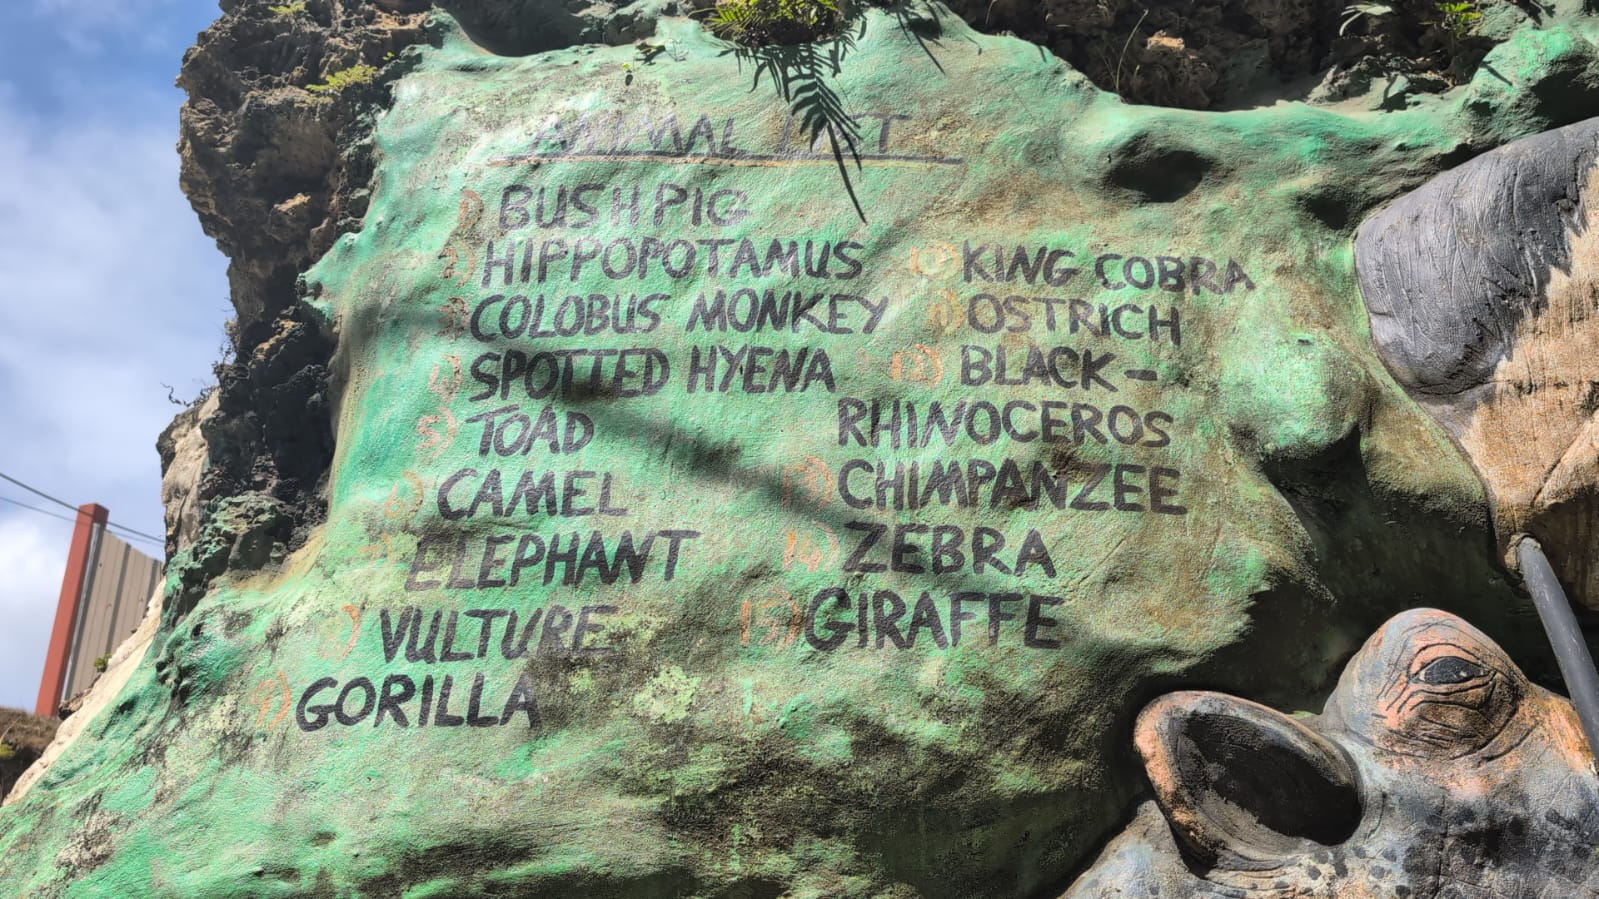 ANIMAL LIST
1) BUSH PIG
2) HIPPOPOTAMUS
3) COLOBUS MONKEY
4) SPOTTED HYENA
5) TOAD
6) CAMEL
7) ELEPHANT
8) VULTURE
9) GORILLA
10) KING COBRA
11) OSTRICH
12) BLACK -
RHINOCEROS
13) CHIMPANZEE
14) ZEBRA
15) GIRAFFE